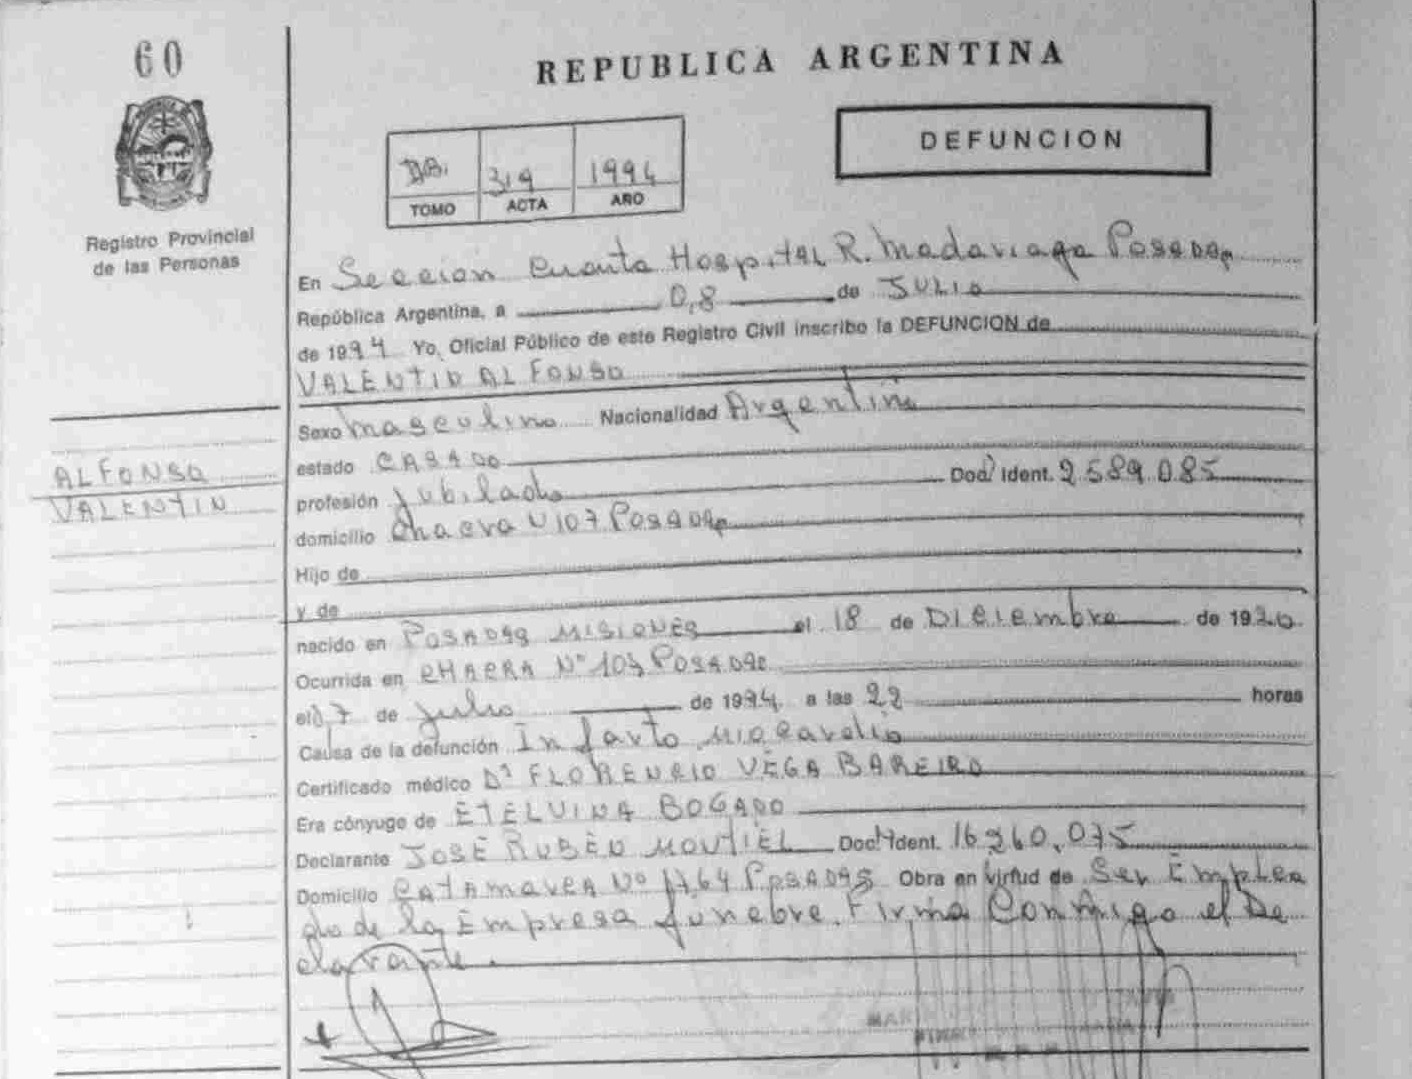 60
REPUBLICA ARGENTINA
DEFUNCION
319 1994
TOMO ACTA AÑO
Registro Provincial
de las Personas
En Seccion Cuarta Hospital R. Madariaga Posadas
República Argentina, a 08 de JULIO
de 1994 Yo, Oficial Público de este Registro Civil inscribo la DEFUNCION de
VALENTIN ALFONSO
Sexo Masculino Nacionalidad Argentino
estado CASADO
profesión Jubilado Doc. Ident. 2.589.085
domicilio Chacra N 107 Posadas
Hijo de
y de
nacido en POSADAS MISIONES el 18 de Diciembre de 19
Ocurrida en CHACRA Nº 107 POSADAS
el 07 de Julio de 1994 a las 22 horas
Causa de la defunción Infarto Miocardio
Certificado médico Dr FLORENCIO VEGA BAREIRO
Era cónyuge de ETELVINA BOGADO
Declarante JOSÉ RUBÉN MONTIEL Doc. Ident. 16.360.075
Domicilio CATAMARCA Nº 1764 POSADAS Obra en virtud de Ser Emplea
do de la Empresa funebre. Firma Conmigo el De
clarante.
ALFONSO
VALENTIN